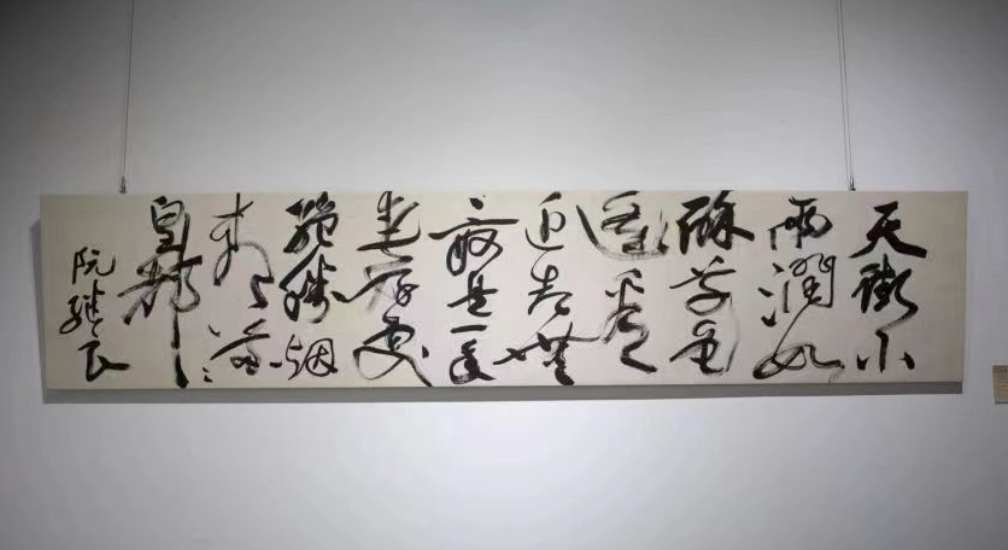 天街小
雨潤如
酥草色
遥看
近却無
最是一年
春好處
絕勝烟
柳滿
皇都
阮继